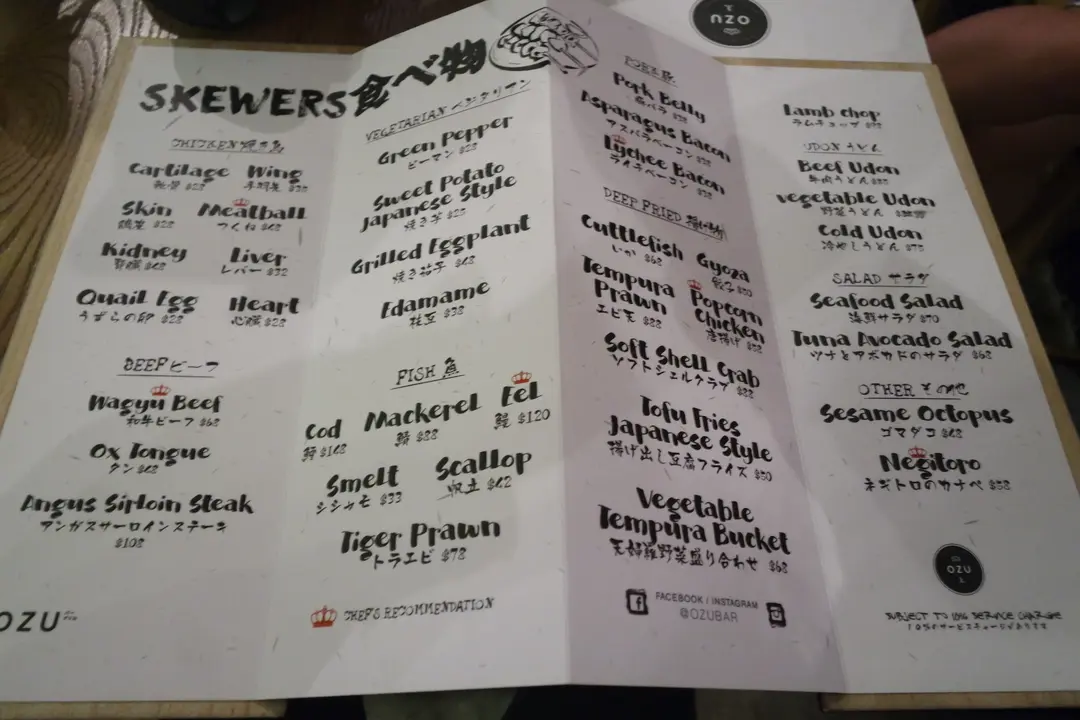 SKEWERS 食べ物
CHICKEN 焼き鳥
Cartilage Wing
軟骨 $28 手羽先 $38
Skin Meatball
$28 つくね $48
Kidney Liver
腎臓 $48 レバー $32
Quail Egg Heart
うずらの卵 $28 心臓 $28
BEEF ビーフ
Wagyu Beef
和牛ビーフ $68
Ox Tongue
タン $48
Angus Sirloin Steak
アンガスサーロインステーキ
$108
OZU
VEGETARIAN ベジタリアン
Green Pepper
ピーマン $28
Sweet Potato
Japanese Style
焼き芋 $28
Grilled Eggplant
焼き茄子 $48
Edamame
枝豆 $38
FISH 魚
Cod Mackerel Eel
$148 鯖 $88 鰻 $120
Smelt Scallop
シシャモ $33 帆立 $42
Tiger Prawn
トラエビ $78
CHEF'S RECOMMENDATION
PORK 豚
Pork Belly
豚バラ $38
Asparagus Bacon
アスパラベーコン $38
Lychee Bacon
ライチベーコン $38
DEEP FRIED 揚げ物
Cuttlefish Gyoza
いか $68 餃子 $50
Tempura Popcorn
Prawn Chicken
エビ天 $88 唐揚げ $58
Soft Shell Crab
ソフトシェルクラブ $88
Tofu Fries
Japanese Style
揚げ出し豆腐フライズ $50
Vegetable
Tempura Bucket
天婦羅野菜盛り合わせ $68
FACEBOOK / INSTAGRAM
@OZUBAR
OZU
Lamb chop
ラムチョップ
UDON うどん
Beef Udon
牛肉うどん $88
vegetable Udon
野菜うどん
Cold Udon
冷やしうどん $78
SALAD サラダ
Seafood Salad
海鮮サラダ $70
Tuna Avocado Salad
ツナとアボカドのサラダ $68
OTHER その他
Sesame Octopus
ゴマダコ $48
Negitoro
ネギトロのカナペ $58
OZU
SUBJECT TO 10% SERVICE CHARGE
10%のサービスチャージがあります